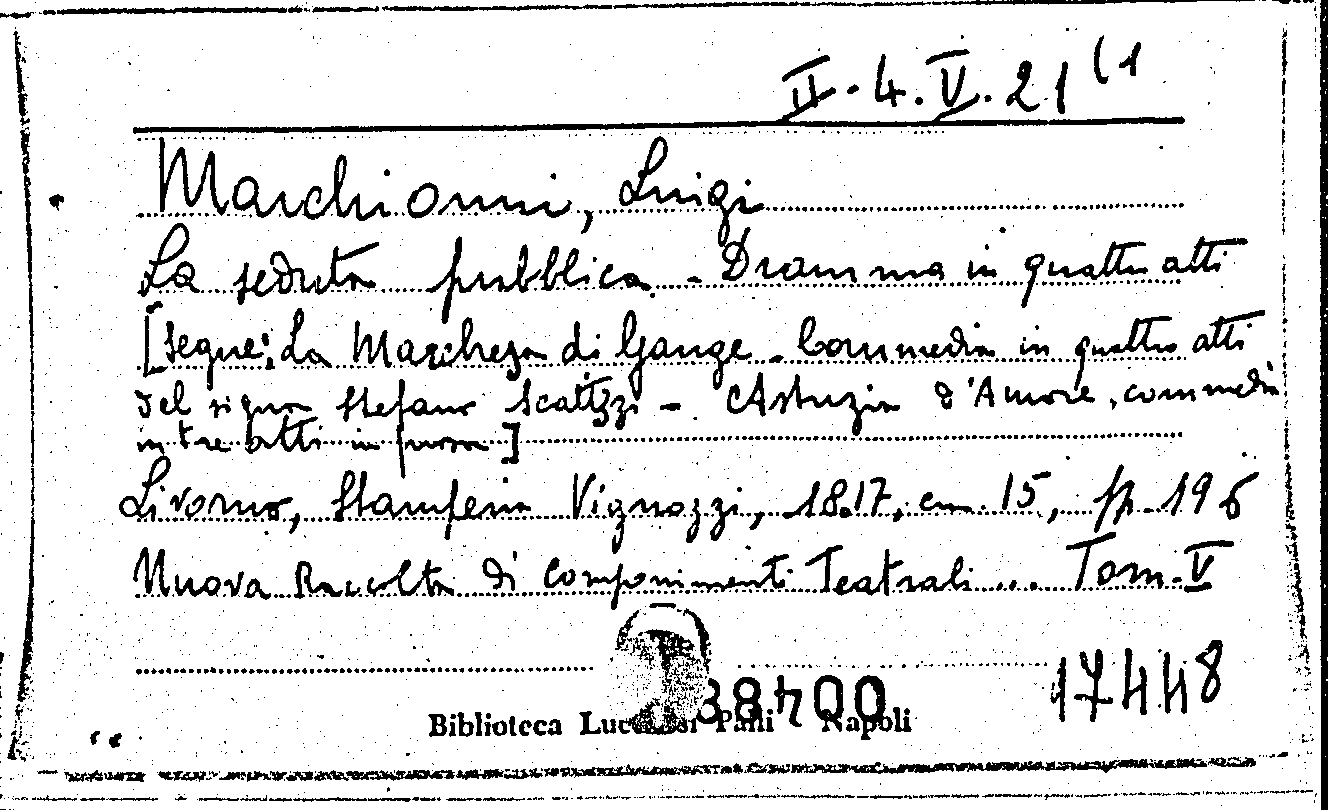 II.4.V.21 (1
Marchionni, Luigi
La seduta pubblica - Dramma in quattro atti
[segue: La Marchesa di Gange - Commedia in quattro atti
del signor Stefano Scatizzi - Astuzia d'Amore, commedia
in tre atti in prosa]
Livorno, Stamperia Vignozzi, 1817, cm. 15, pp. 196
Nuova Raccolta di componimenti Teatrali ... Tom. V
17448
Biblioteca Lucchesi Palli Napoli